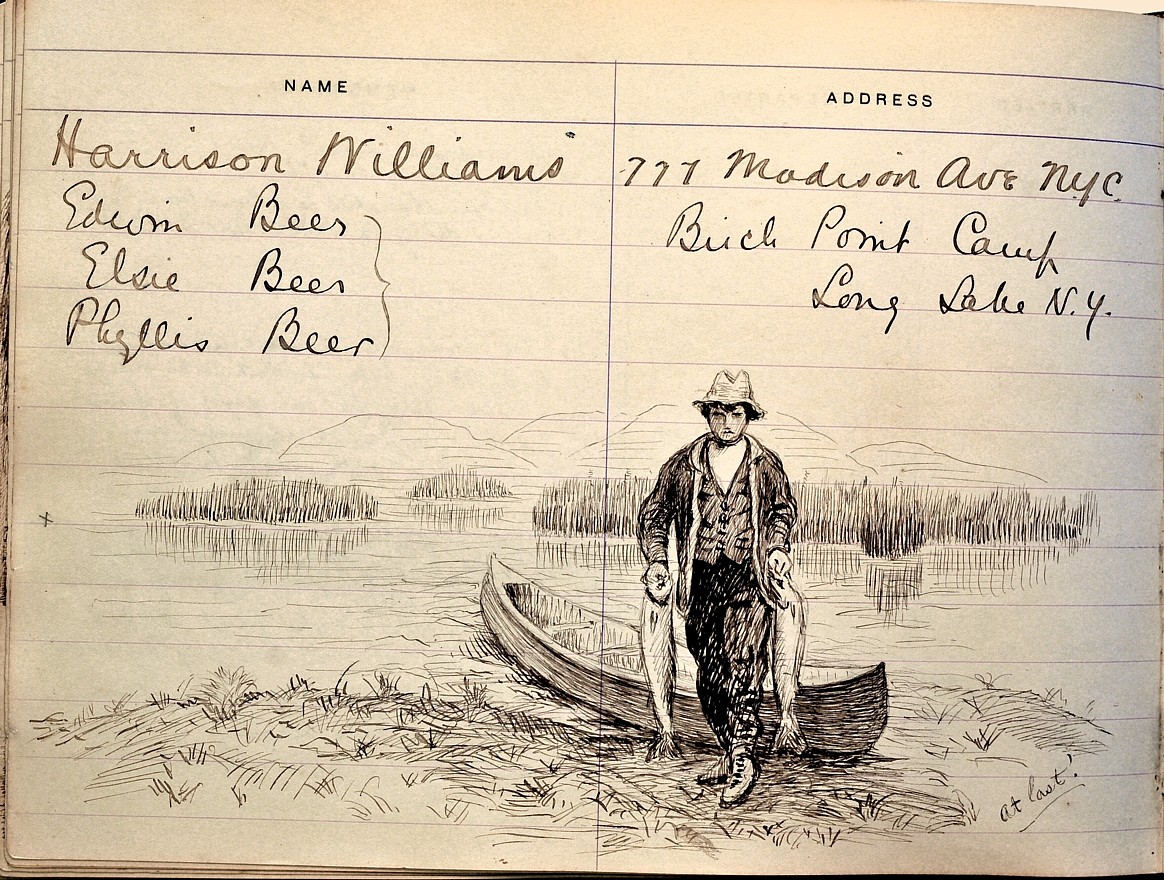 NAME ADDRESS
Harrison Williams 777 Madison Ave NYC.
Edwin Beer Birch Point Camp
Elsie Beer Long Lake N.Y.
Phyllis Beer
at last!